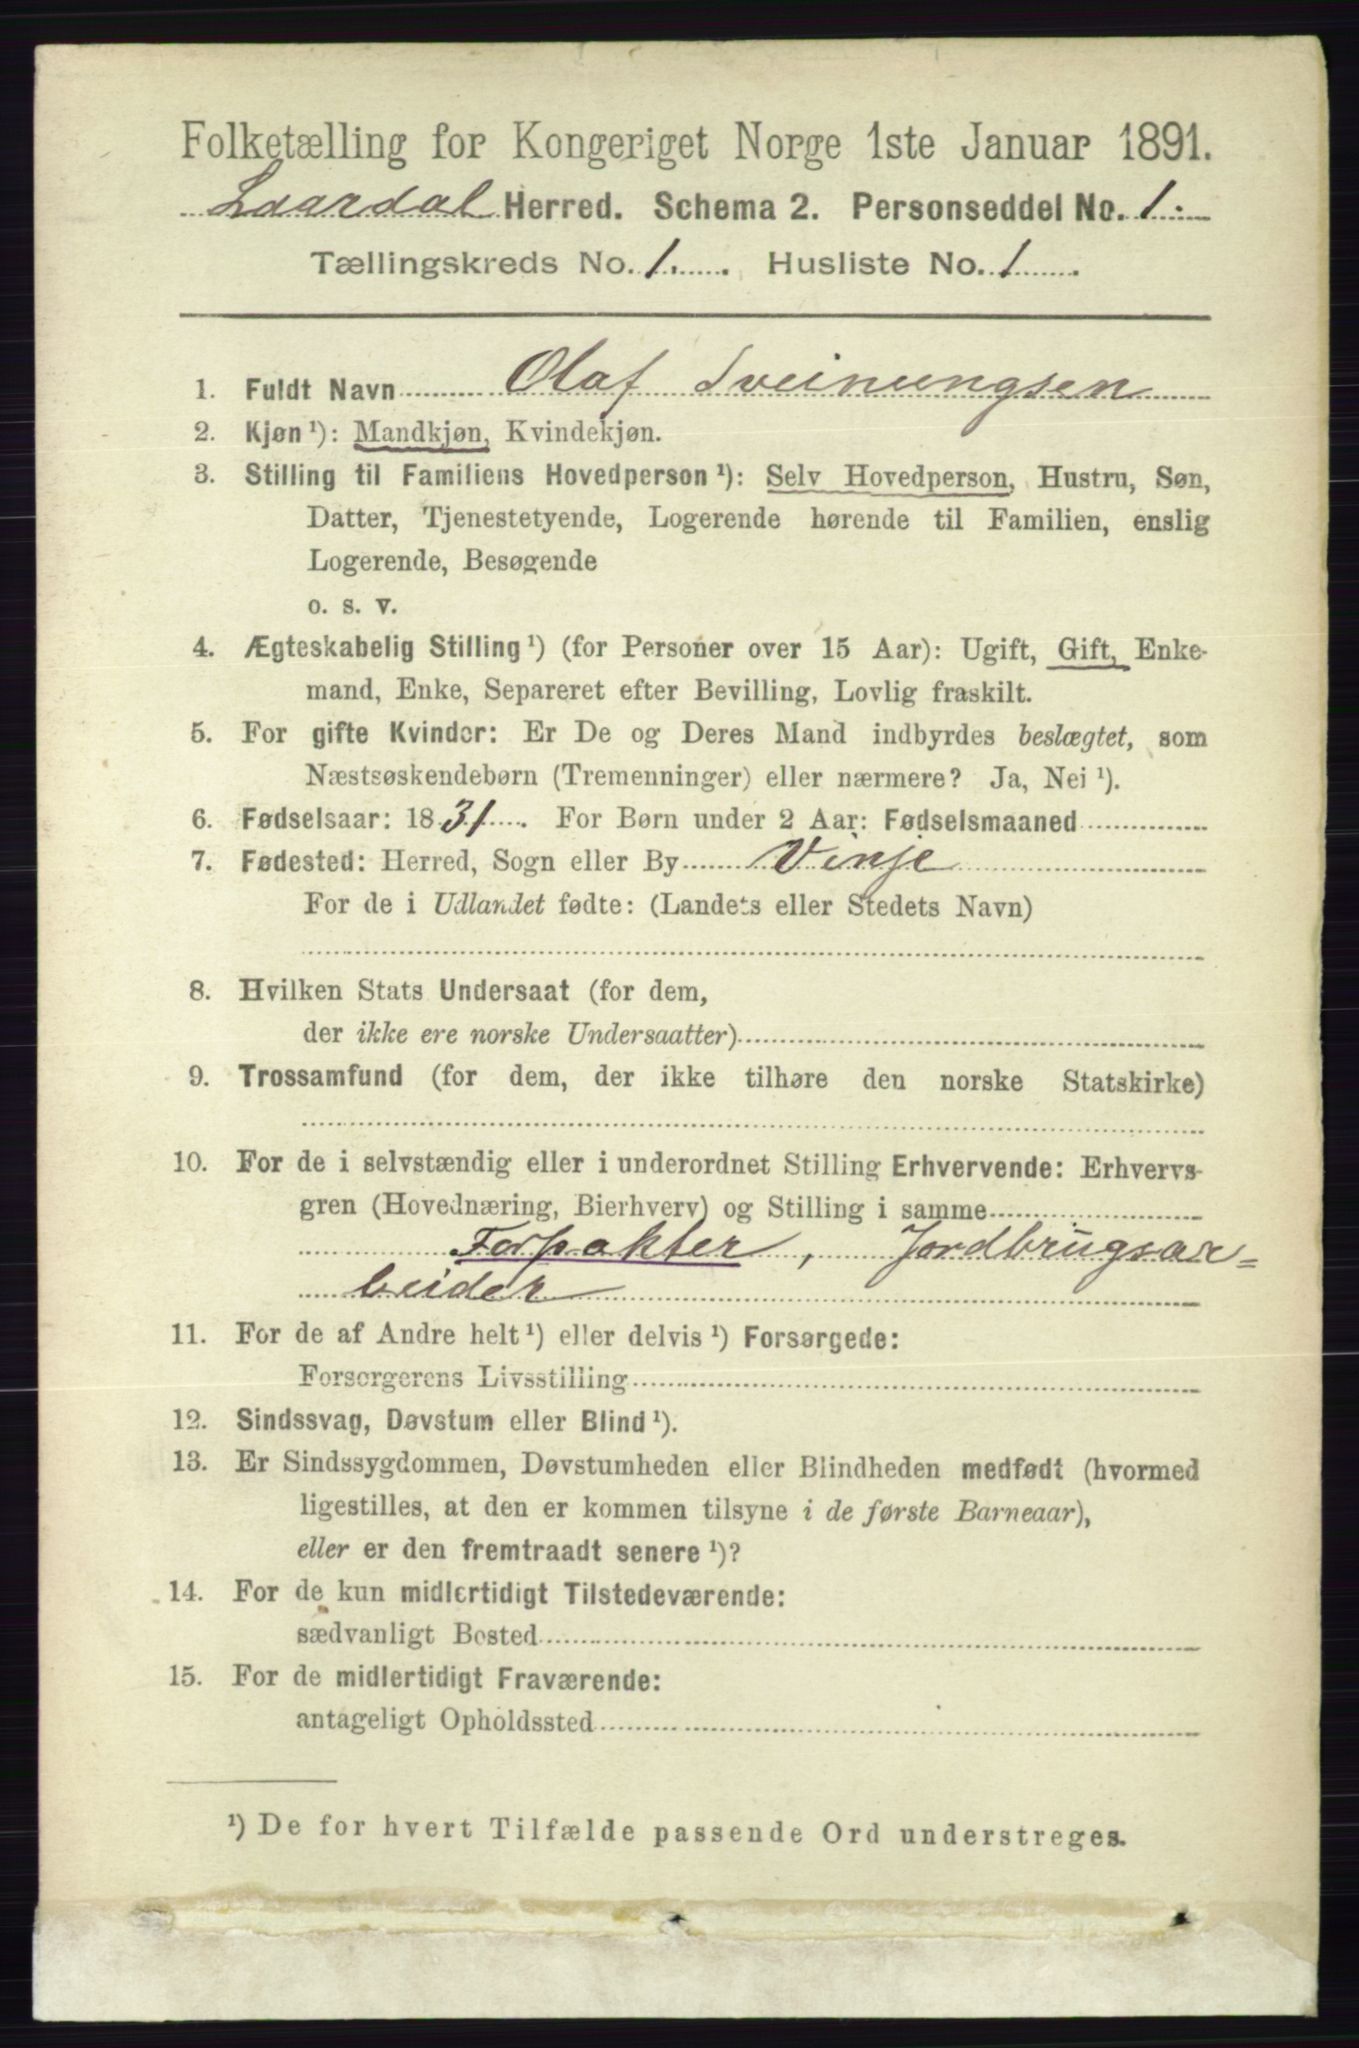 Folketælling for Kongeriget Norge 1ste Januar 1891.
Laardal Herred. Schema 2. Personseddel No. 1.
Tællingskreds No. 1. Husliste No. 1.
1. Fuldt Navn Olaf Sveinungsen
2. Kjøn ¹): Mandkjøn, Kvindekjøn.
3. Stilling til Familiens Hovedperson ¹): Selv Hovedperson, Hustru, Søn,
Datter, Tjenestetyende, Logerende hørende til Familien, enslig
Logerende, Besøgende
o. s. v.
4. Ægteskabelig Stilling ¹) (for Personer over 15 Aar): Ugift, Gift, Enke-
mand, Enke, Separeret efter Bevilling, Lovlig fraskilt.
5. For gifte Kvinder: Er De og Deres Mand indbyrdes beslægtet, som
Næstsøskendebørn (Tremenninger) eller nærmere? Ja, Nei ¹).
6. Fødselsaar: 1831. For Børn under 2 Aar: Fødselsmaaned
7. Fødested: Herred, Sogn eller By Vinje
For de i Udlandet fødte: (Landets eller Stedets Navn)
8. Hvilken Stats Undersaat (for dem,
der ikke ere norske Undersaatter)
9. Trossamfund (for dem, der ikke tilhøre den norske Statskirke)
10. For de i selvstændig eller i underordnet Stilling Erhvervende: Erhvervs-
gren (Hovednæring, Bierhverv) og Stilling i samme
Forpakter, Jordbrugsar=
beider
11. For de af Andre helt ¹) eller delvis ¹) Forsørgede:
Forsørgerens Livsstilling
12. Sindssvag, Døvstum eller Blind ¹).
13. Er Sindssygdommen, Døvstumheden eller Blindheden medfødt (hvormed
ligestilles, at den er kommen tilsyne i de første Barneaar),
eller er den fremtraadt senere ¹)?
14. For de kun midlertidigt Tilstedeværende:
sædvanligt Bosted
15. For de midlertidigt Fraværende:
antageligt Opholdssted
¹) De for hvert Tilfælde passende Ord understreges.